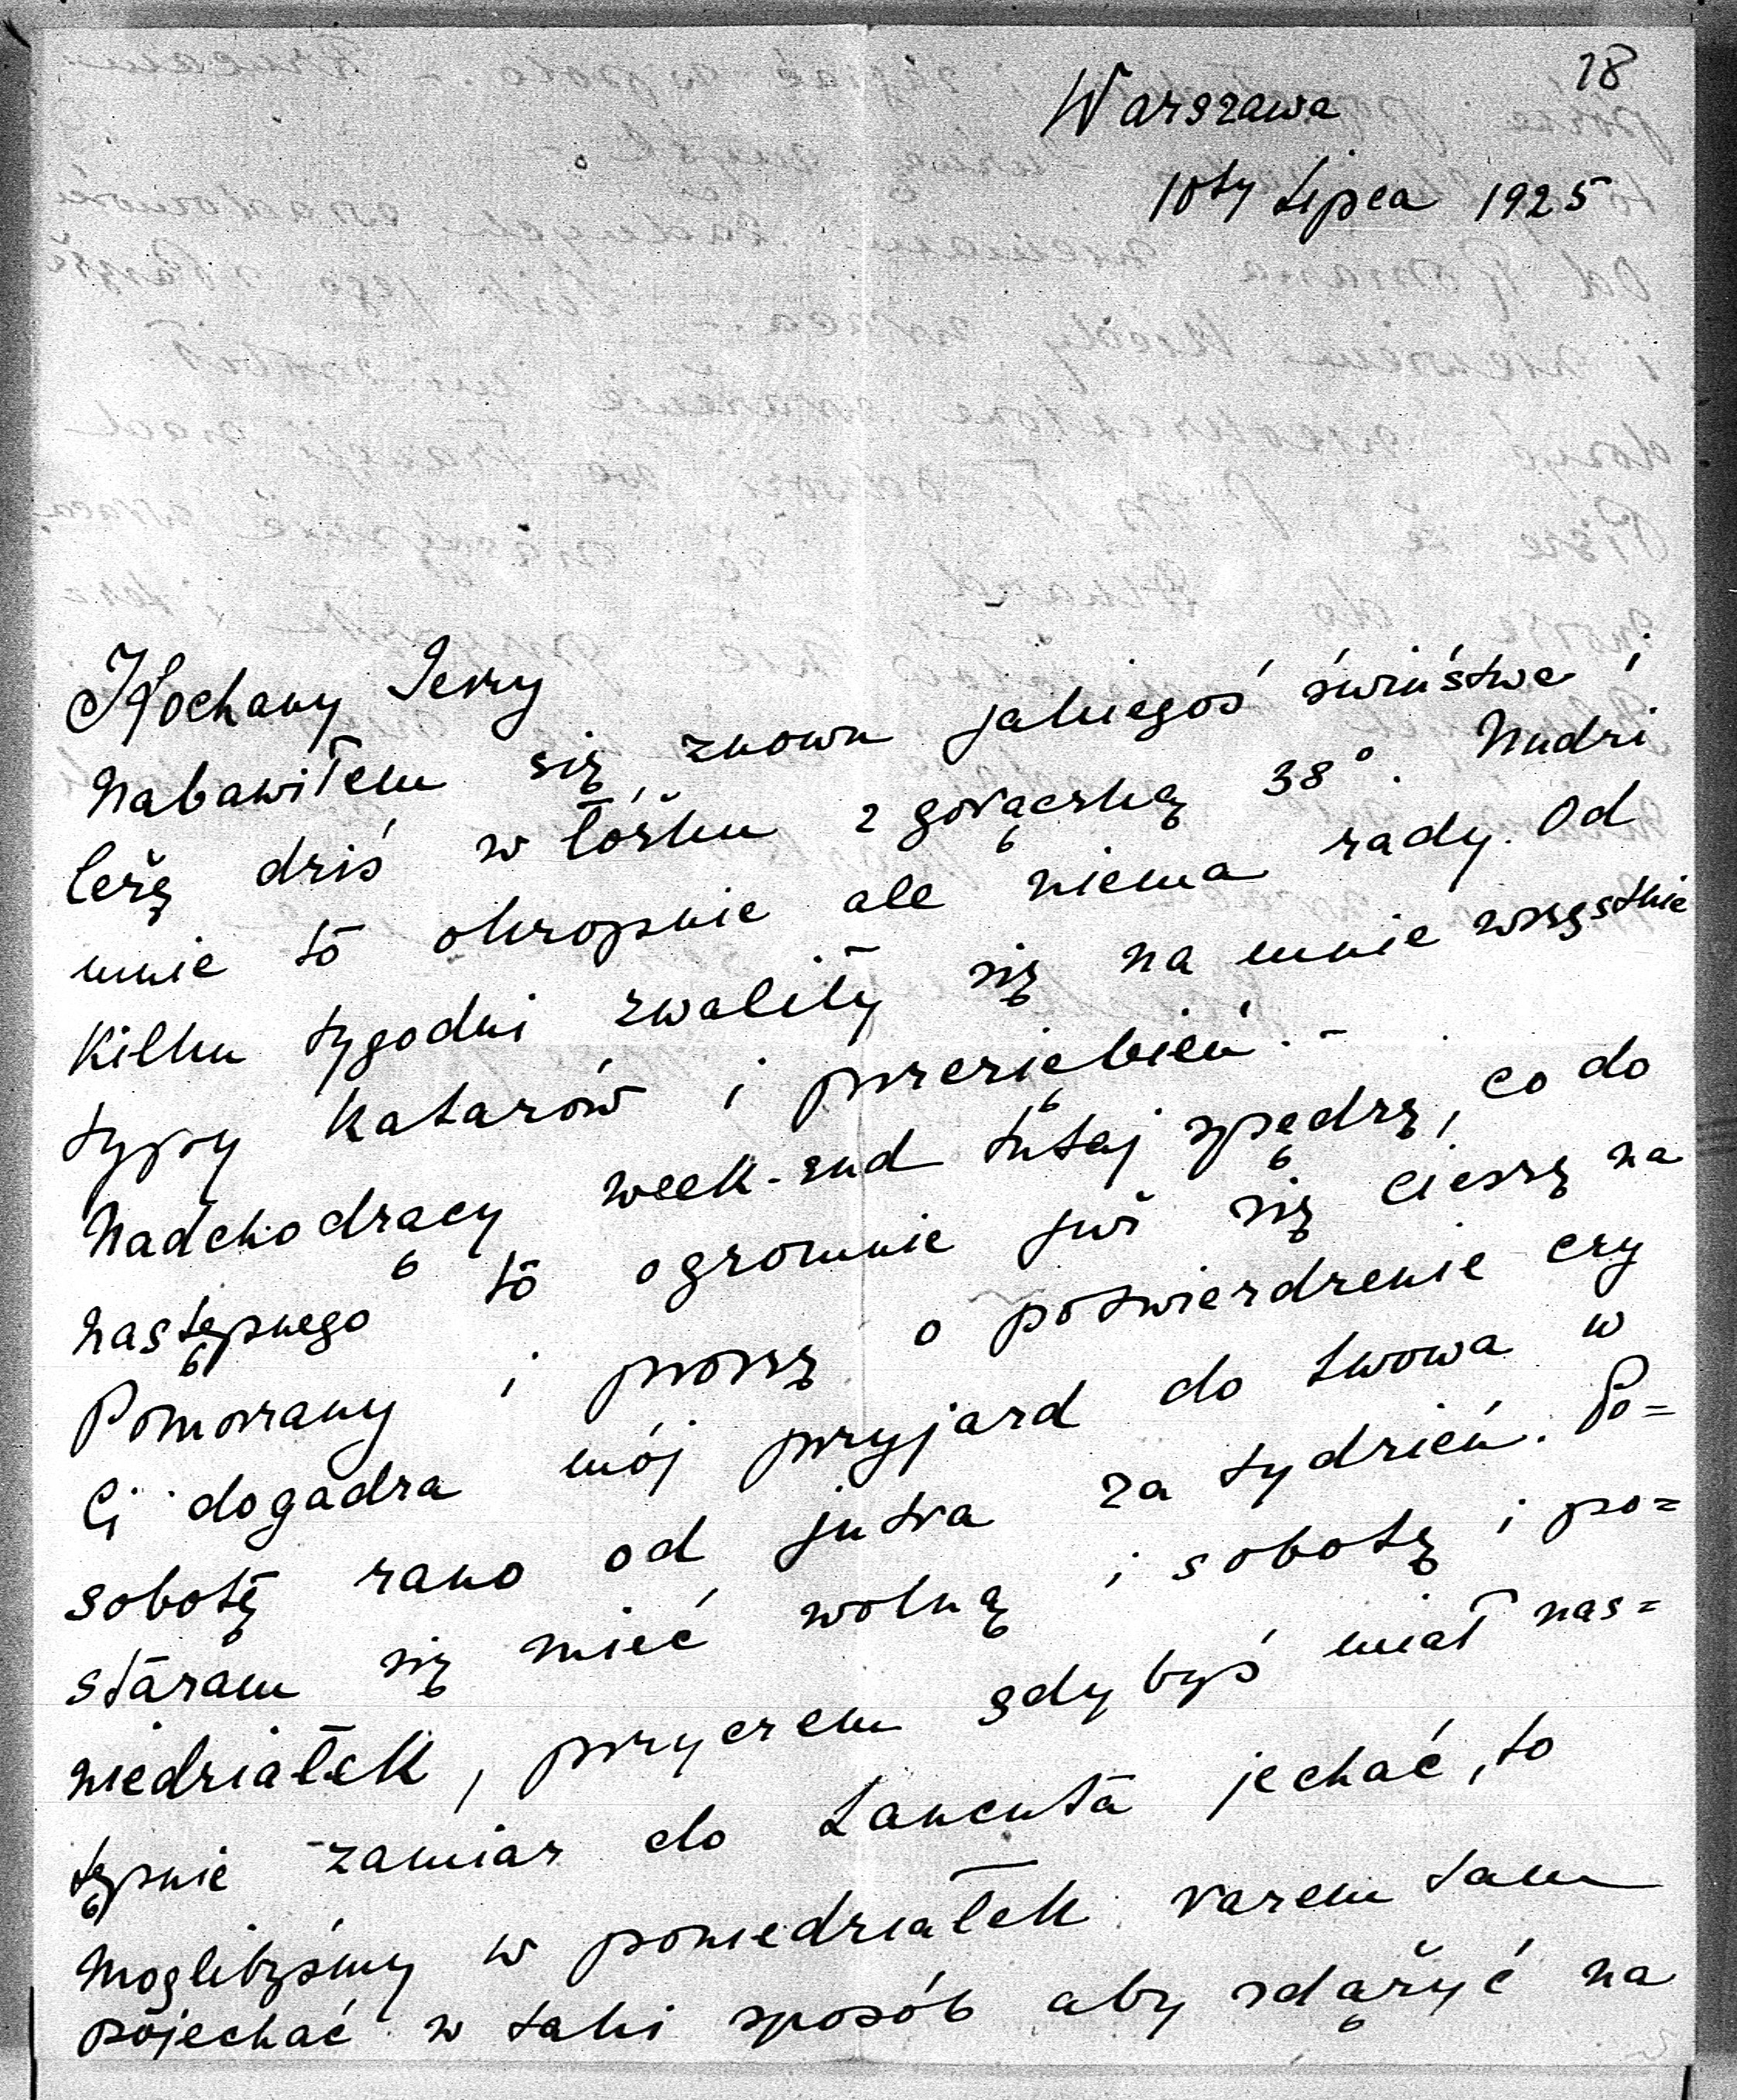 18
Warszawa
10ty Lipca 1925
Kochany Jerzy
Nabawiłem się znowu jakiegoś świństwa i
leżę dziś w łóżku z gorączką 38°. Nudzi
mnie to okropnie ale niema rady. Od
kilku tygodni zwaliły się na mnie wszystkie
typy katarów i przeziębień. -
Nadchodzący week-end tutaj spędzę, co do
następnego to ogromnie już się cieszę na
Pomorzany i proszę o potwierdzenie czy
Ci dogadza mój przyjazd do Lwowa w
sobotę rano od jutra za tydzień. Po=
staram się mieć wolną i sobotę i po=
niedziałek, przyczem gdybyś miał nas=
tępnie zamiar do Łancuta jechać, to
moglibyśmy w poniedziałek razem tam
pojechać w taki sposób aby zdążyć na